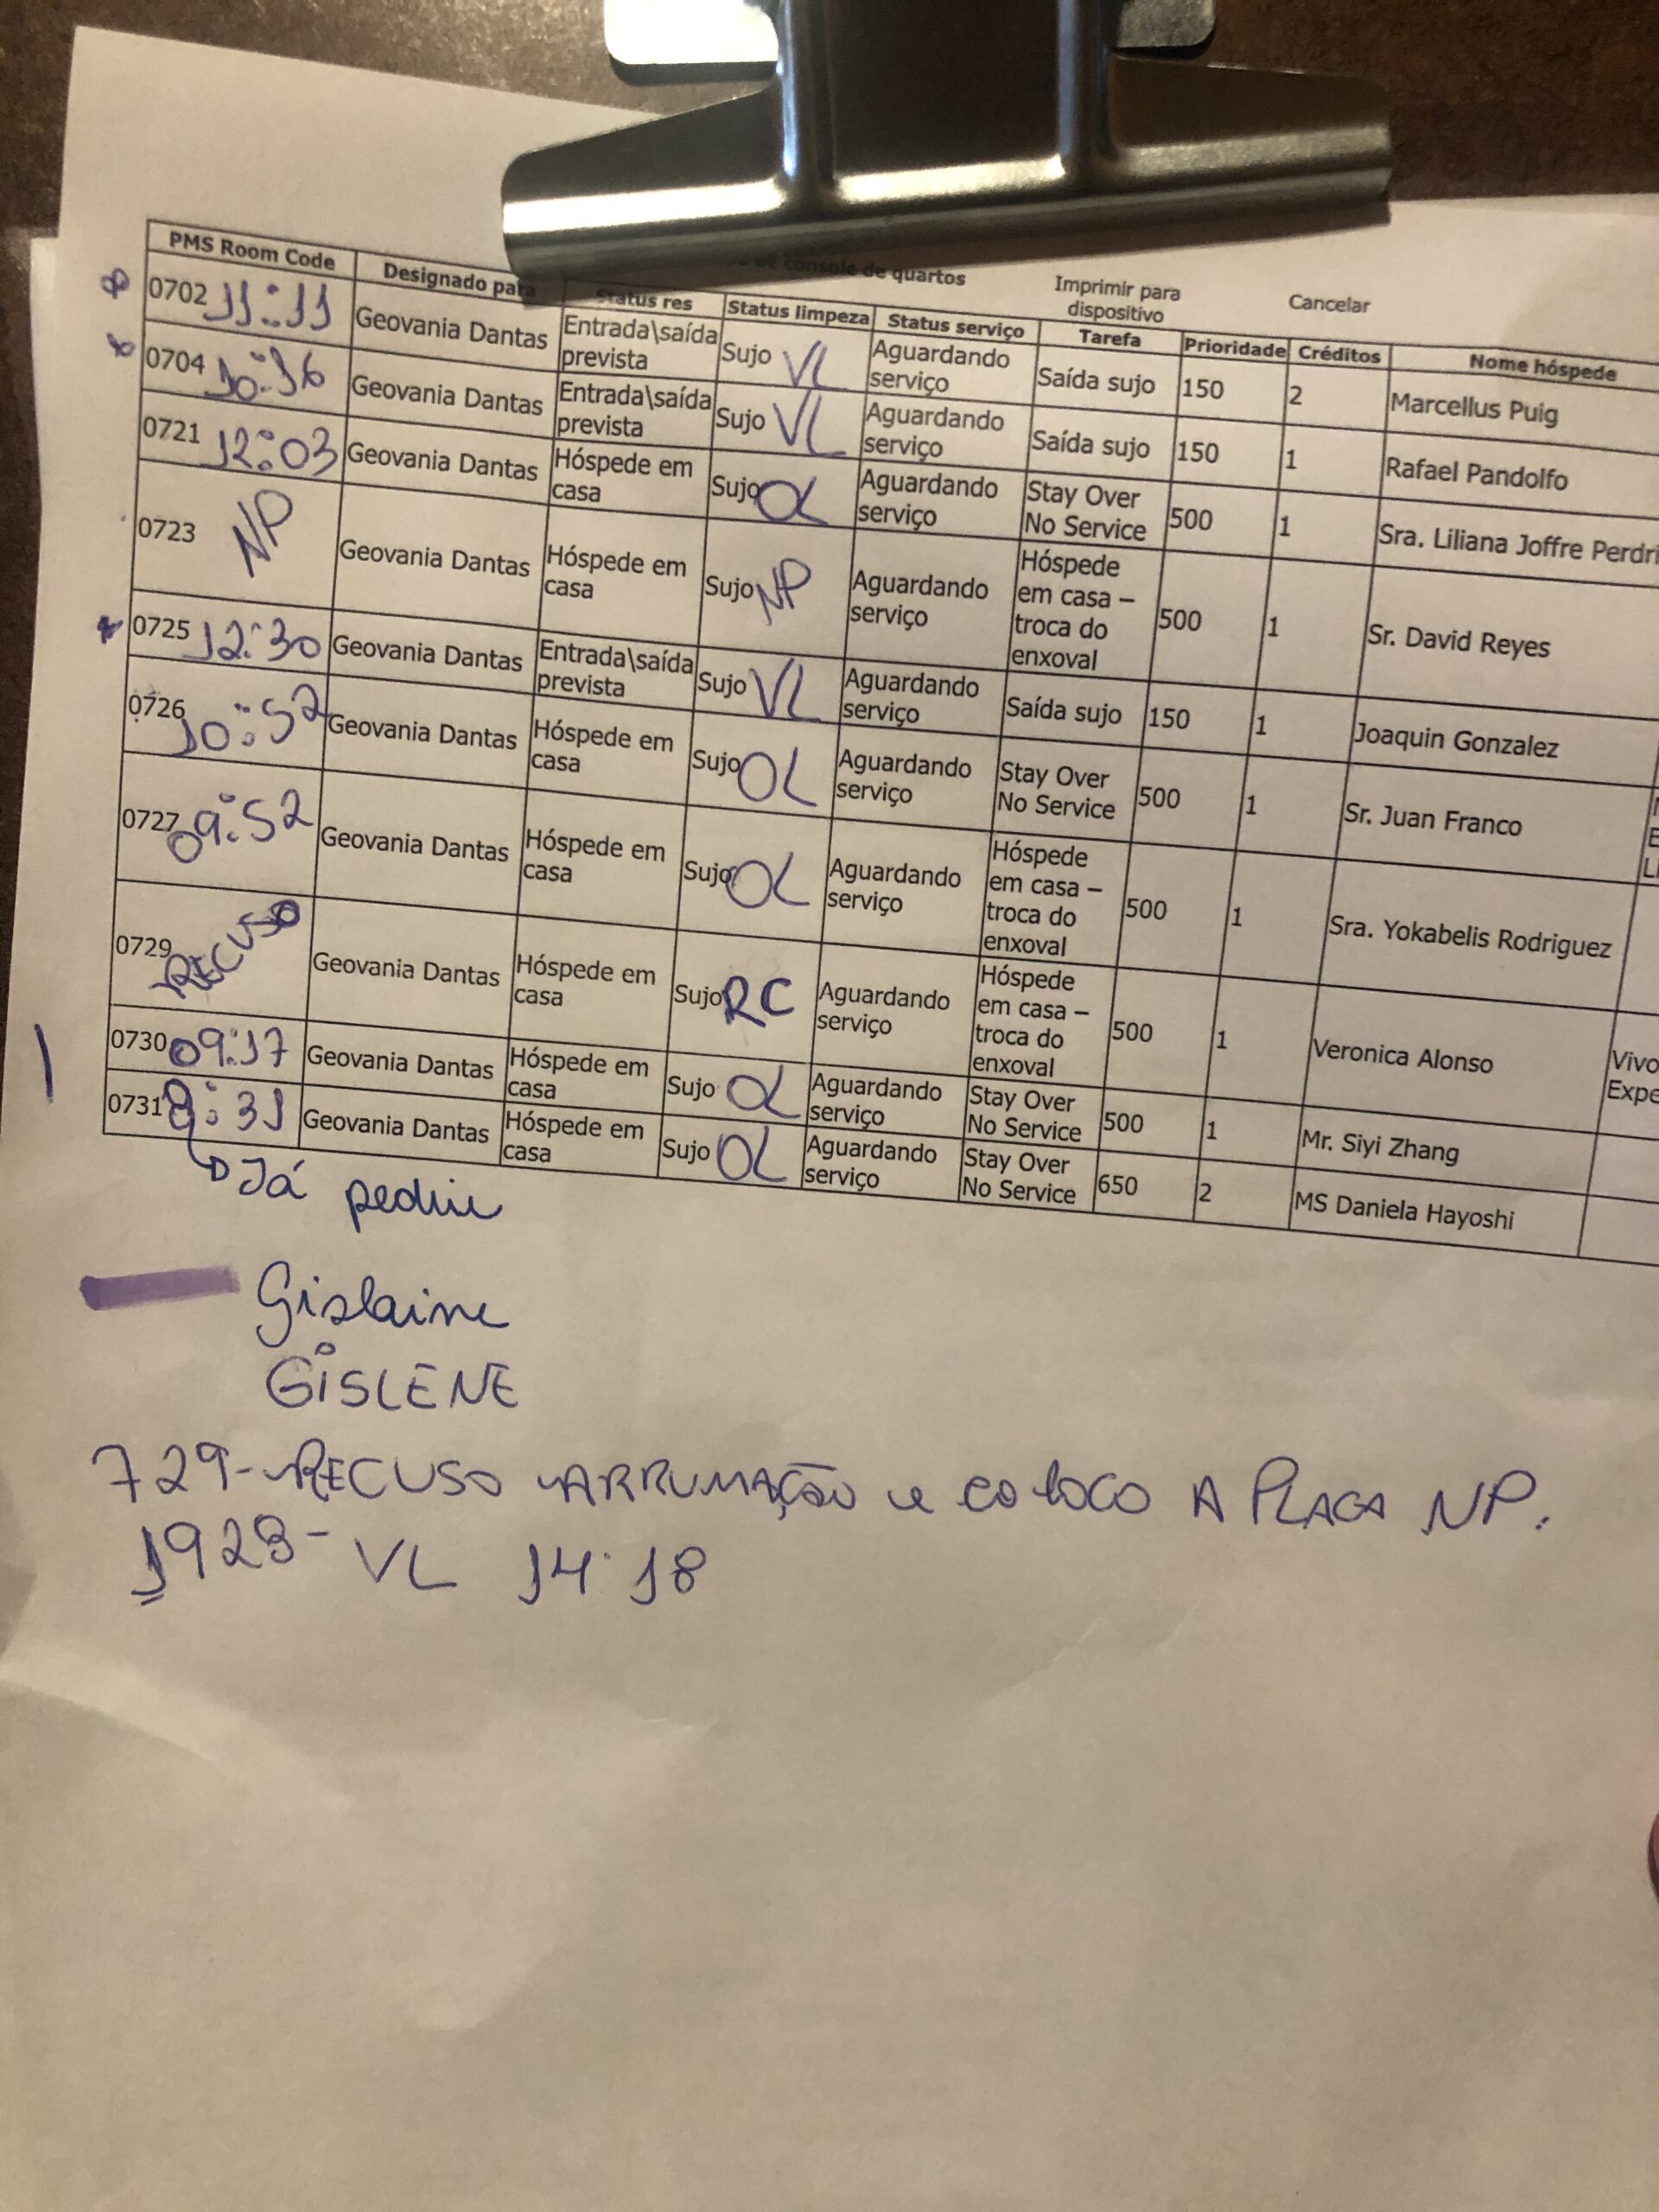 de console de quartos
Imprimir para dispositivo Cancelar
PMS Room Code Designado para Status res Status limpeza Status serviço Tarefa Prioridade Créditos Nome hóspede
0702 11:11 Geovania Dantas Entrada\saída prevista Sujo VL Aguardando serviço Saída sujo 150 2 Marcellus Puig
0704 10:16 Geovania Dantas Entrada\saída prevista Sujo VL Aguardando serviço Saída sujo 150 1 Rafael Pandolfo
0721 12:03 Geovania Dantas Hóspede em casa Sujo OL Aguardando serviço Stay Over No Service 500 1 Sra. Liliana Joffre Perdri
0723 NP Geovania Dantas Hóspede em casa Sujo NP Aguardando serviço Hóspede em casa – troca do enxoval 500 1 Sr. David Reyes
0725 12:30 Geovania Dantas Entrada\saída prevista Sujo VL Aguardando serviço Saída sujo 150 1 Joaquin Gonzalez
0726 10:52 Geovania Dantas Hóspede em casa Sujo OL Aguardando serviço Stay Over No Service 500 1 Sr. Juan Franco
0727 09:52 Geovania Dantas Hóspede em casa Sujo OL Aguardando serviço Hóspede em casa – troca do enxoval 500 1 Sra. Yokabelis Rodriguez
0729 RECUSO Geovania Dantas Hóspede em casa Sujo RC Aguardando serviço Hóspede em casa – troca do enxoval 500 1 Veronica Alonso Vivo Expe
0730 09:17 Geovania Dantas Hóspede em casa Sujo OL Aguardando serviço Stay Over No Service 500 1 Mr. Siyi Zhang
0731 9:31 Geovania Dantas Hóspede em casa Sujo OL Aguardando serviço Stay Over No Service 650 2 MS Daniela Hayoshi
Já pediu
Gislaine
GISLENE
729-RECUSO ARRUMAÇÃO e coloco A PLACA NP.
1923- VL 14:18